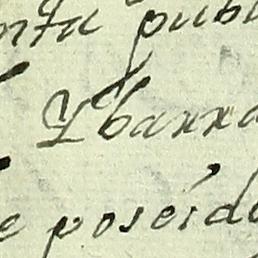 nta publ
Ybarra
e poseído